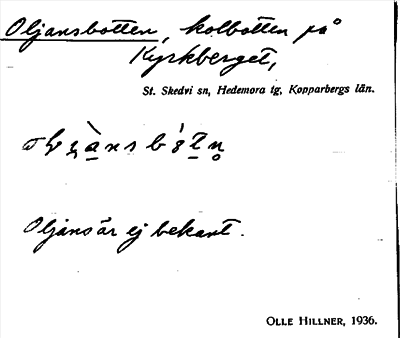 Oljansbotten, kolbotten på
Kyrkberget,
St. Skedvi sn, Hedemora tg, Kopparbergs län.
Oljans är ej bekant.
OLLE HILLNER, 1936.